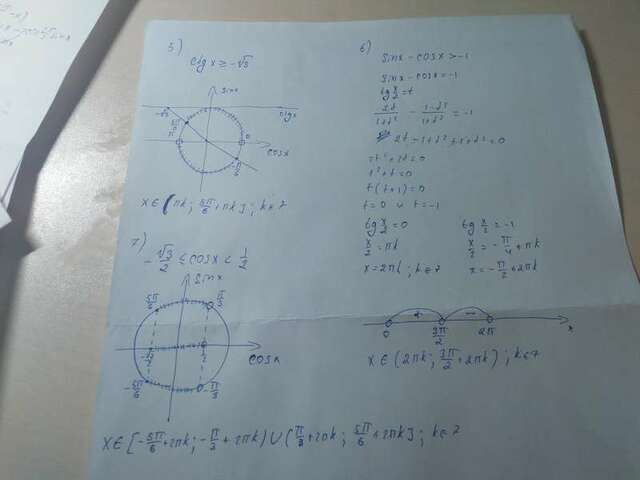 5)
ctg x ≥ -√3
sinx
ctgx
-√3
5π/6
π
0
-π/6
cosx
x∈(πk; 5π/6+πk]; k∈Z
6)
sinx - cosx > -1
sinx - cosx = -1
tg x/2 = t
2t/(1+t²) - (1-t²)/(1+t²) = -1
2t-1+t²+1+t²=0
2t²+2t=0
t²+t=0
t(t+1)=0
t=0 u t=-1
tg x/2 = 0
x/2 = πk
x=2πk; k∈Z
tg x/2 = -1
x/2 = -π/4+πk
x=-π/2+2πk
+
-
0
3π/2
2π
x
x∈(2πk; 3π/2+2πk); k∈Z
7)
-√3/2 ≤ cosx < 1/2
sinx
5π/6
π/3
-√3/2
1/2
cosx
-5π/6
-π/3
x∈[-5π/6+2πk; -π/3+2πk)∪(π/3+2πk; 5π/6+2πk]; k∈Z